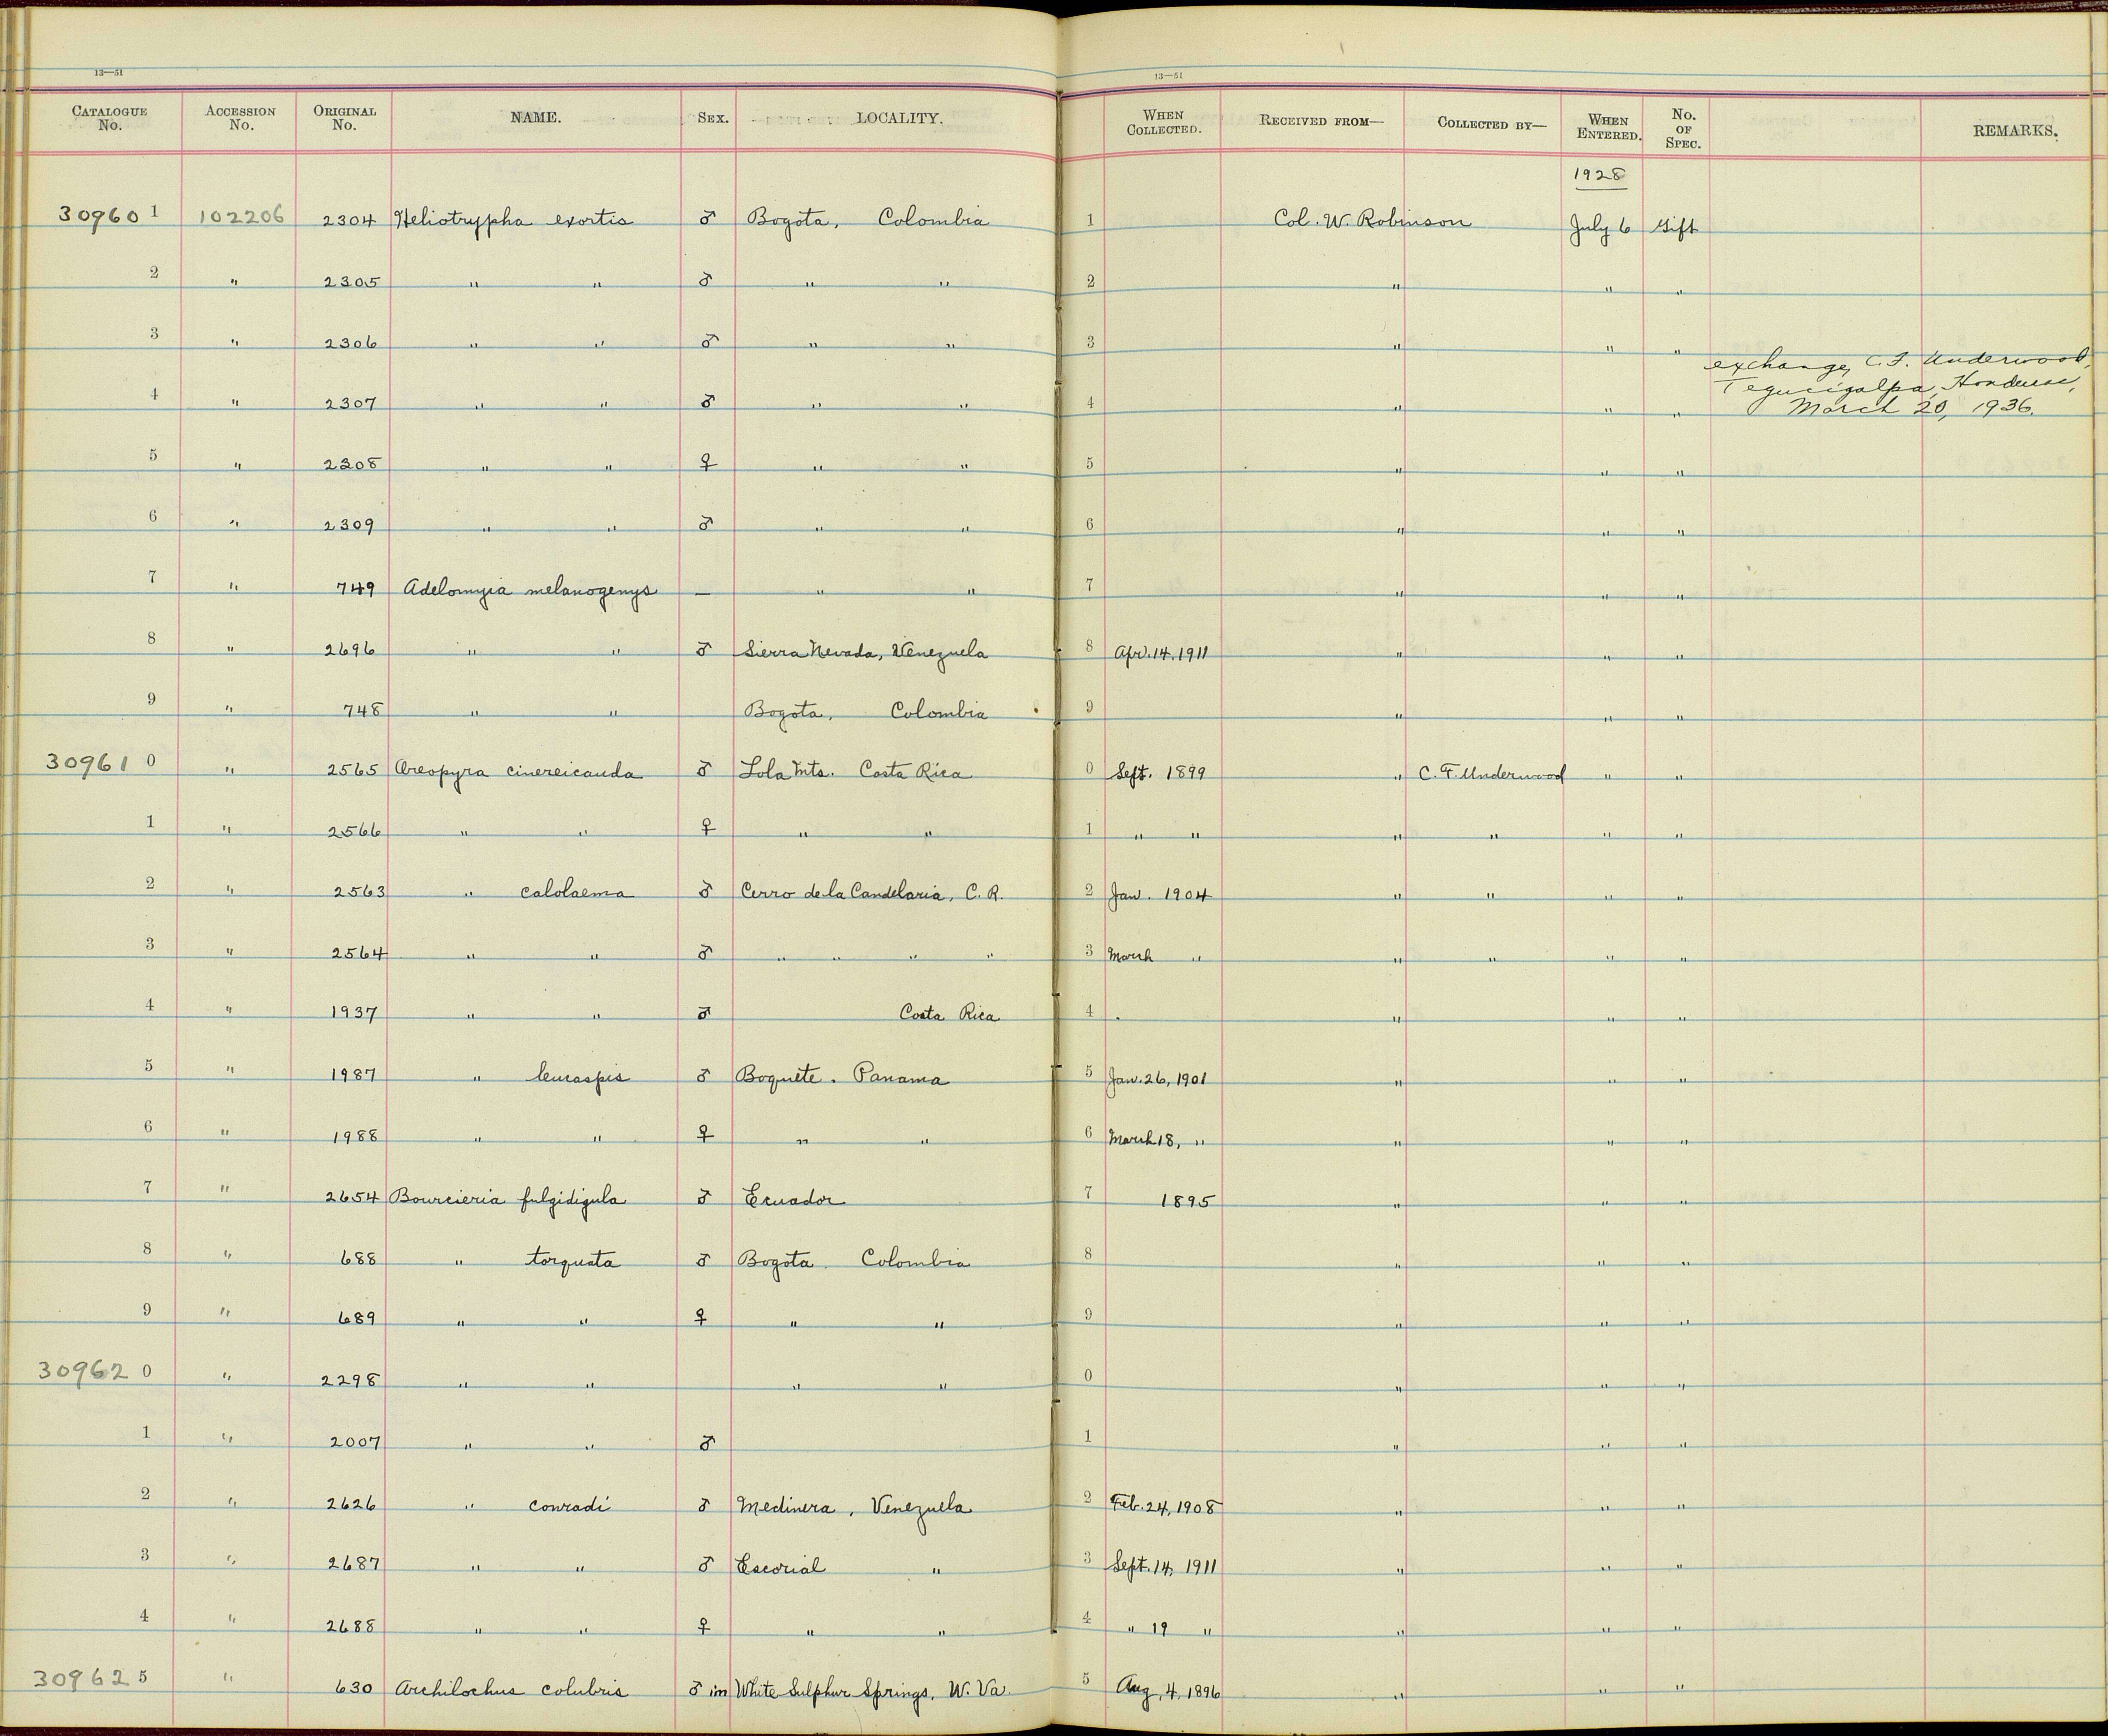 13—51 13—51
CATALOGUE No. ACCESSION No. ORIGINAL No. NAME. SEX. LOCALITY. WHEN COLLECTED. RECEIVED FROM— COLLECTED BY— WHEN ENTERED. No. OF SPEC. REMARKS.
1928
30960 1 102206 2304 Heliotrypha exortis ♂ Bogota, Colombia 1 Col. W. Robinson July 6 Gift
2 " 2305 " " ♂ " " 2 " " "
3 " 2306 " " ♂ " " 3 " " "
exchange, C. F. Underwood,
Tegucigalpa, Honduras,
4 " 2307 " " ♂ " " 4 " " " March 20, 1936.
5 " 2308 " " ♀ " " 5 " " "
6 " 2309 " " ♂ " " 6 " " "
7 " 749 Adelomyia melanogenys — " " 7 " " "
8 " 2696 " " ♂ Sierra Nevada, Venezuela 8 Apr. 14, 1911 " " "
9 " 748 " " Bogota, Colombia 9 " " "
30961 0 " 2565 Oreopyra cinereicauda ♂ Lola Mts. Costa Rica 0 Sept. 1899 " C. F. Underwood " "
1 " 2566 " " ♀ " " 1 " " " " " "
2 " 2563 " calolaema ♂ Cerro de la Candelaria, C. R. 2 Jan. 1904 " " " "
3 " 2564 " " ♂ " " " " 3 March " " " " "
4 " 1937 " " ♂ Costa Rica 4 " " "
5 " 1987 " leucaspis ♂ Boquete. Panama 5 Jan. 26, 1901 " " "
6 " 1988 " " ♀ " " 6 March 18, " " " "
7 " 2654 Bourcieria fulgidigula ♂ Ecuador 7 1895 " " "
8 " 688 " torquata ♂ Bogota Colombia 8 " " "
9 " 689 " " ♀ " " 9 " " "
30962 0 " 2298 " " " " 0 " " "
1 " 2007 " " ♂ 1 " " "
2 " 2626 " conradi ♂ Medinera, Venezuela 2 Feb. 24, 1908 " " "
3 " 2687 " " ♂ Escorial " 3 Sept. 14, 1911 " " "
4 " 2688 " " ♀ " " 4 " 19 " " " "
30962 5 " 630 Archilochus colubris ♂ im White Sulphur Springs, W. Va. 5 Aug. 4, 1896 " " "